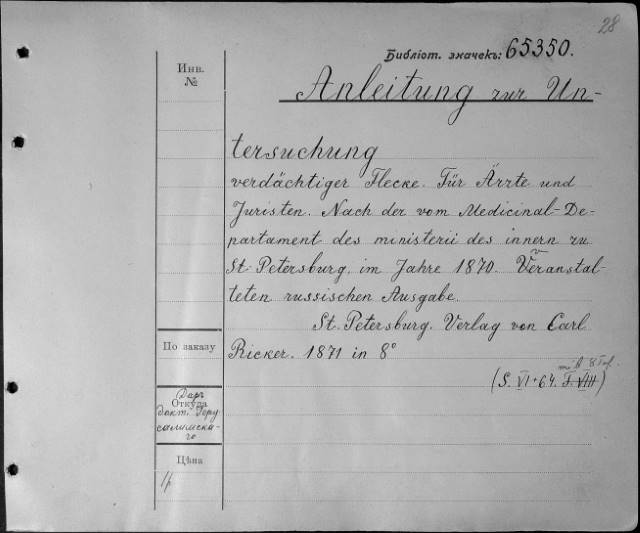 28
Библіот. значекъ: 65350.
Инв.
№
Anleitung zur Un-
tersuchung
verdächtiger Flecke. Für Ärzte und
Juristen. Nach der vom Medicinal-De-
partament des ministerii des innern zu
St. Petersburg, im Jahre 1870. Veranstal-
teten russischen Ausgabe.
St. Petersburg. Verlag von Carl
Ricker. 1871 in 8°
mit 8 Taf.
(S. VI+64. T. VIII)
По заказу
Даръ
Откуда
докт. Іеру
салимска-
го
Цѣна